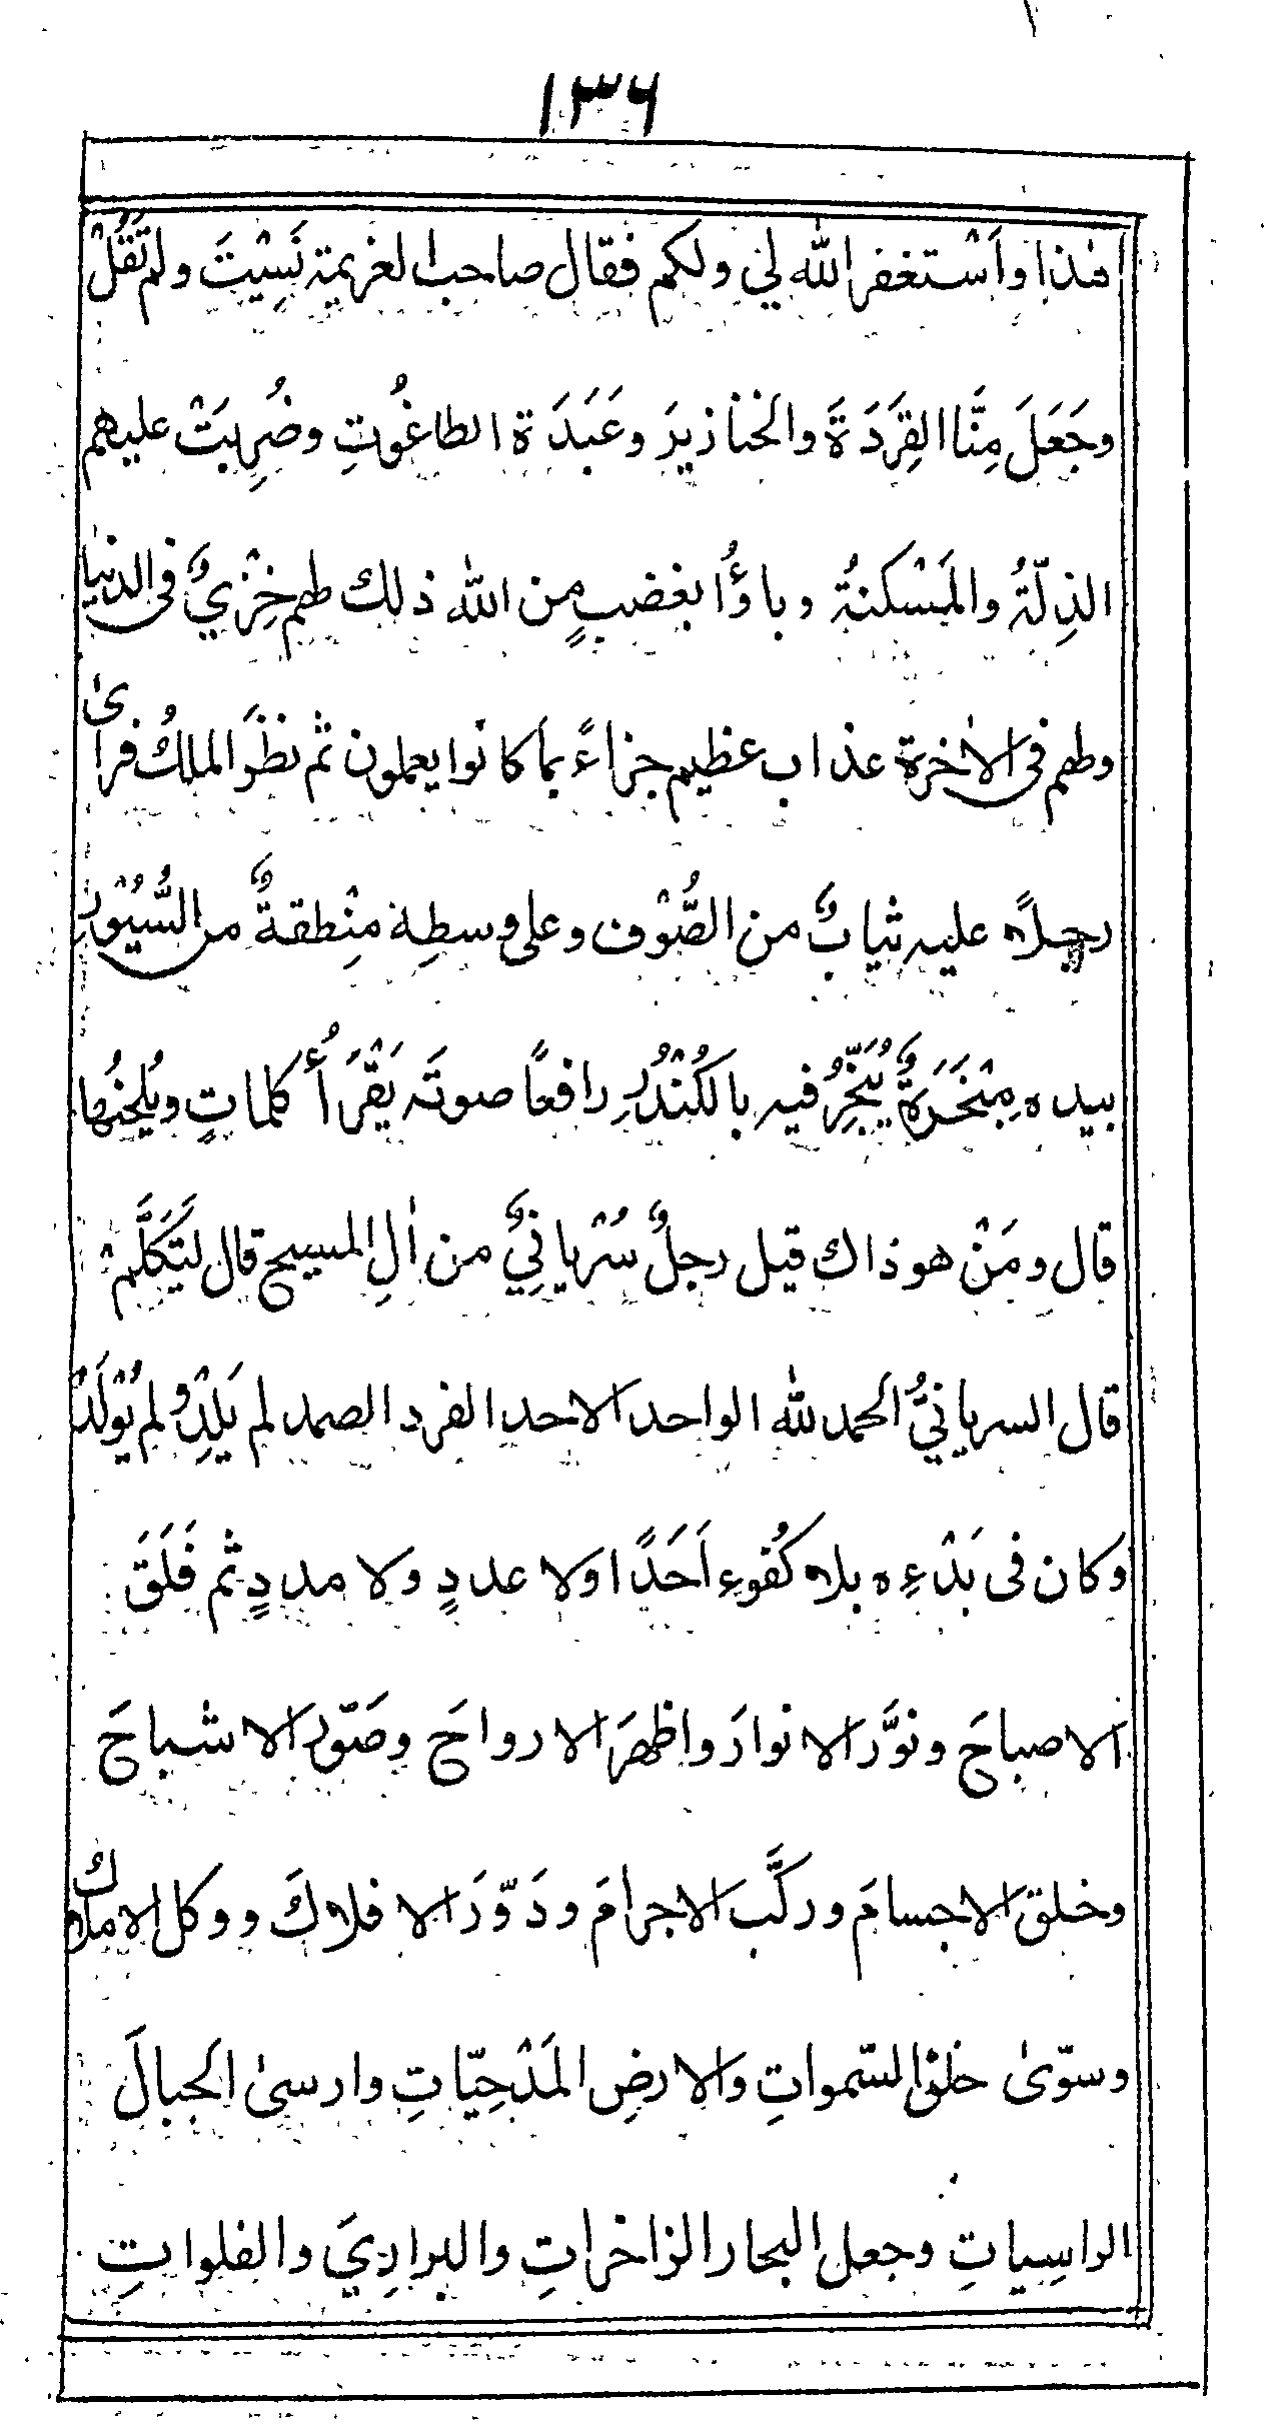 ١٣٦
هٰذا واَسْتغفر الله لي ولكم فقال صاحب العزيمة نَسِيْتَ ولم تَقُلْ
وجَعَلَ مِنَّا القِرَدَةَ والخنازيرَ وعَبَدَة الطاغُوتِ وضُرِبَتْ عليهم
الذِلّةُ والمَسْكنةُ وباؤُا بغضبٍ من الله ذلك لهم خِزْيٌ فى الدنيا
ولهم فى الاٰخرة عذاب عظيم جزاءً بما كانوا يعملون ثم نظَرَ الملكُ فراىٰ
رجلاً عليه ثيابٌ من الصُّوْف وعلى وسطِه مِنْطقةٌ من السُّيُوْرِ
بيده مِبْخَرَةٌ يُبَخِّرُ فيه بالكُنْدُرِ رافعًا صوتَه يَقْرَأُ كلماتٍ ويُلحِنُها
قال ومَنْ هو ذاك قيل رجلٌ سُرْيانِيٌّ من اٰلِ المسيح قال لِيَتَكَلَّمْ
قال السريانيُّ الحمد لله الواحد الاحد الفرد الصمد لم يَلِدْ ولم يُوْلَدْ
وكان فى بَدْءِه بلا كُفوءِ اَحَدًا ولا عددٍ ولا مددٍ ثم فَلَقَ
الاصباحَ ونوَّر الانوارَ واظهرَ الارواحَ وصَوّر الاشباحَ
وخلق الاجسامَ وركَّب الاجرامَ ودَوّرَ الافلاكَ ووكل الاملاك
وسوّىٰ خلقَ السّمواتِ والارضِ المَدْحِيّاتِ وارسىٰ الجبالَ
الراسِياتِ وجعل البحار الزاخراتِ والبرارِيَ والفلواتِ